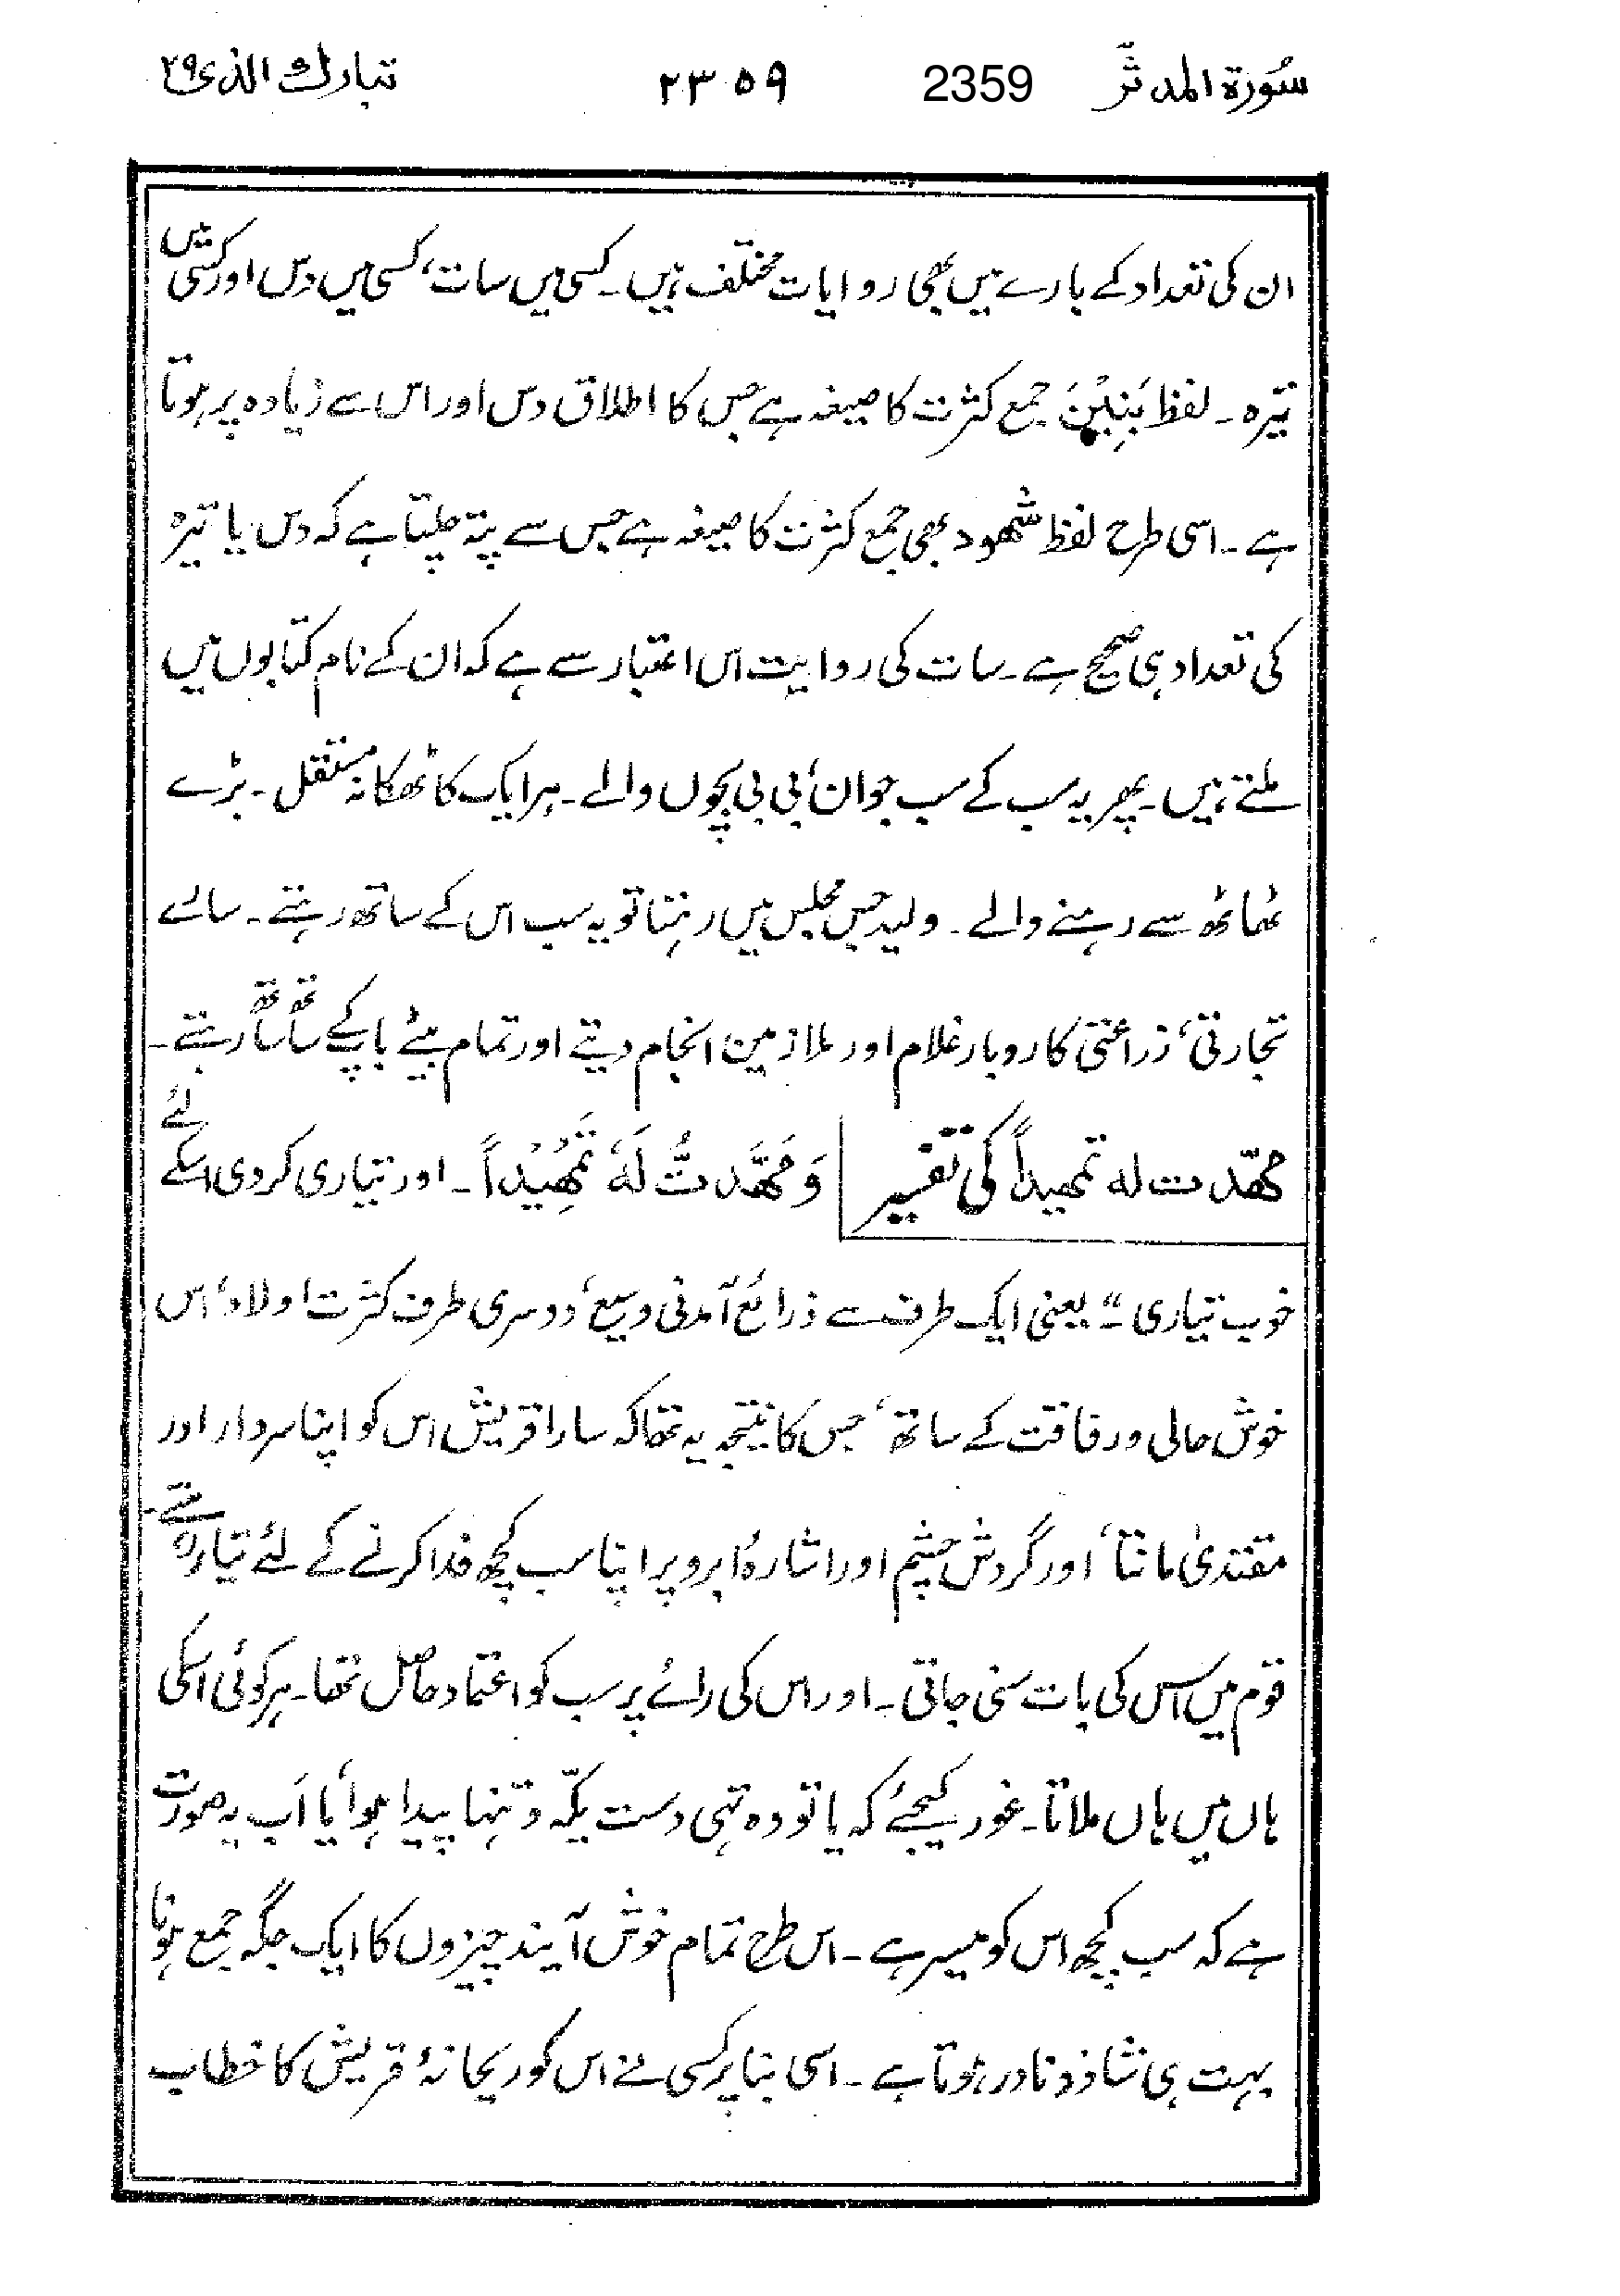 سُورۃ المدثّر 2359 ۲۳۵۹ تبارك الذی ۲۹
ان کی تعداد کے بارے میں بھی روایات مختلف ہیں۔ کسی میں سات، کسی میں دس اور کسی میں
تیرہ۔ لفظ بَنِیْنَ جمع کثرت کا صیغہ ہے جس کا اطلاق دس اور اس سے زیادہ پر ہوتا
ہے۔ اسی طرح لفظ شھود بھی جمع کثرت کا صیغہ ہے جس سے پتہ چلتا ہے کہ دس یا تیرہ
کی تعداد ہی صحیح ہے۔ سات کی روایت اس اعتبار سے ہے کہ ان کے نام کتابوں میں
ملتے ہیں۔ پھر یہ سب کے سب جوان، بی بی بچوں والے۔ ہر ایک کا ٹھکانہ مستقل۔ بڑے
ٹھاٹھ سے رہنے والے۔ ولید جس مجلس میں رہتا تو یہ سب اس کے ساتھ رہتے۔ سارے
تجارتی، زراعتی کاروبار غلام اور ملازمین انجام دیتے اور تمام بیٹے باپ کے ساتھ ساتھ رہتے۔
مھّدت لہ تمھیداً کی تفسیر وَمَھَّدتُّ لَہٗ تَمْھِیْداً۔ اور تیاری کردی اسکے لئے
خوب تیاری۔“ یعنی ایک طرف سے ذرائع آمدنی وسیع، دوسری طرف کثرت اولاد، اس
خوش حالی ورفاقت کے ساتھ، جس کا نتیجہ یہ تھا کہ سارا قریش اس کو اپنا سردار اور
مقتدیٰ مانتا، اور گردش چشم اور اشارۂ ابرو پر اپنا سب کچھ فدا کرنے کے لئے تیار رہتے۔
قوم میں اس کی بات سنی جاتی۔ اور اس کی رائے پر سب کو اعتماد حاصل تھا۔ ہر کوئی اسکی
ہاں میں ہاں ملاتا۔ غور کیجئے کہ یا تو وہ تہی دست یکّہ و تنہا پیدا ہوا، یا اَب یہ صورت
ہے کہ سب کچھ اس کو میسر ہے۔ اس طرح تمام خوش آیند چیزوں کا ایک جگہ جمع ہونا
بہت ہی شاذ ونادر ہوتا ہے۔ اسی بنا پر کسی نے اس کو ریحانۂ قریش کا خطاب